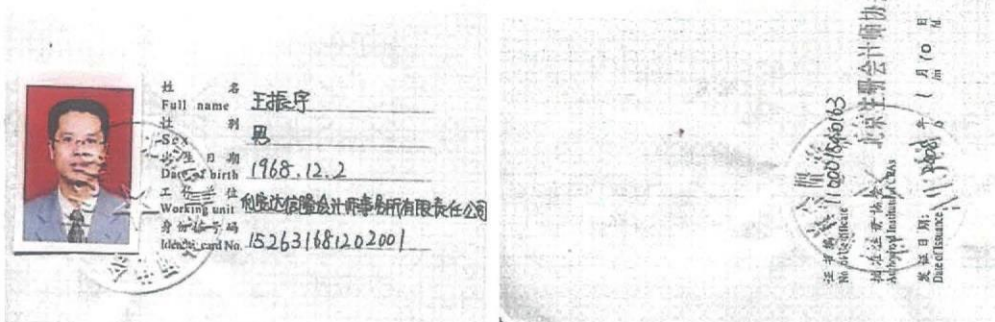 姓 名
Full name 王振宇
性 别
Sex 男
出 生 日 期
Date of birth 1968.12.2
工 作 单 位
Working unit 利安达信隆会计师事务所有限责任公司
身 份 证 号 码
Identity card No. 152631681202001
证书编号
No. of Certificate 110001540163
批准注册协会 北京注册会计师协
Authorized Institute of CPAs
发证日期: 年 1 月 10 日
Date of Issuance /y /m /d